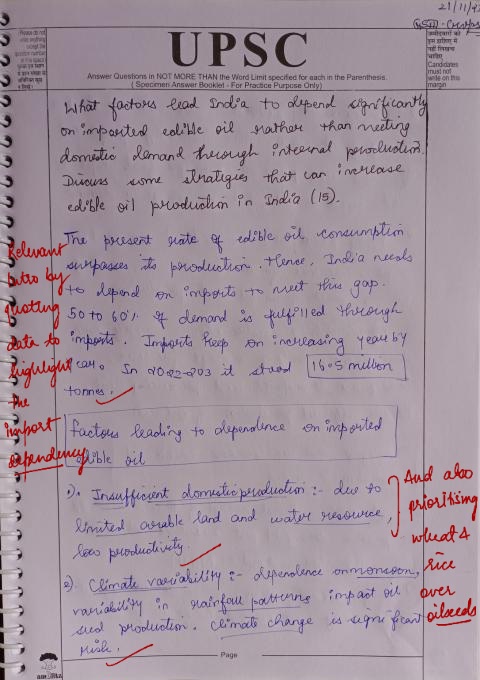 21/11/
Please do not write anything except the question number in this space
UPSC
उम्मीदवारों को इस हाशिए में नहीं लिखना चाहिए
Candidates must not write on this margin
Answer Questions in NOT MORE THAN the Word Limit specified for each in the Parenthesis.
( Specimen Answer Booklet - For Practice Purpose Only)
What factors lead India to depend significantly
on imported edible oil rather than meeting
domestic demand through internal production.
Discuss some strategies that can increase
edible oil production in India (15).
The present rate of edible oil consumption
surpasses its production. Hence, India needs
to depend on imports to meet this gap.
50 to 60% of demand is fulfilled through
imports. Imports keep on increasing year by
year. In 2022-203 it stood 16.5 million
tonnes.
Relevant
intro by
quoting
data to
highlight
the
import
dependency
Factors leading to dependence on imported
edible oil
1). Insufficient domestic production :- due to
limited arable land and water resource,
low productivity.
And also
prioritising
wheat &
rice
over
oilseeds
2). Climate variability :- dependence on monsoon,
variability in rainfall patterns impact oil
seed production. Climate change is significant
risk.
Page